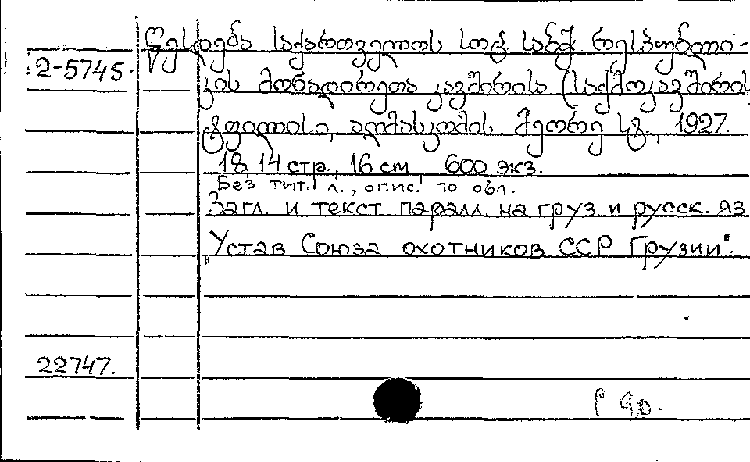 წესდება საქართველოს სოც. საბჭ. რესპუბლი-
2-5745.
კის მონადირეთა კავშირის (საქმოკავშირის
ტფილისი, აღმასკომის მეორე სტ., 1927.
18, 14 стр., 16 см, 600 экз.
Без тит. л., опис. по обл.
Загл. и текст паралл. на груз. и русск. яз
„Устав Союза охотников ССР Грузии".
22747.